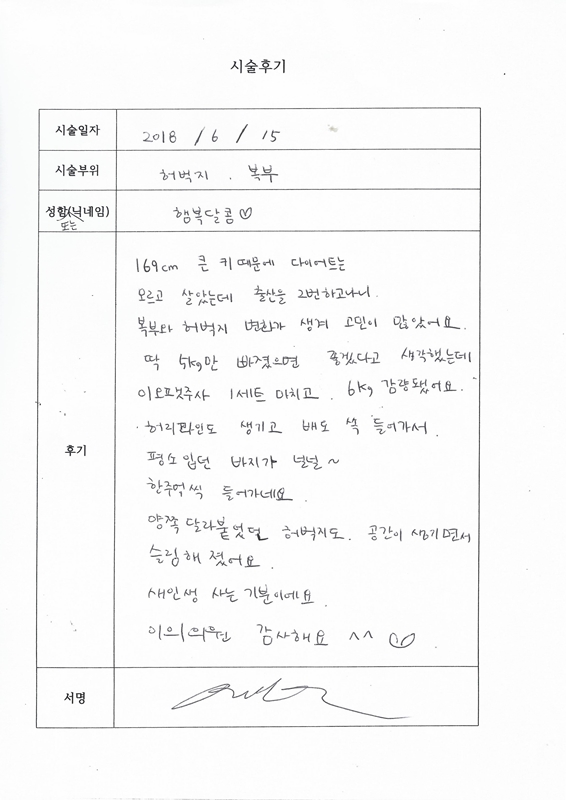 시술후기
시술일자
2018 / 6 / 15
시술부위
허벅지 . 복부
성함(닉네임)
또는
행복달콤♡
후기
169cm 큰 키 때문에 다이어트는
모르고 살았는데 출산을 2번하고나니.
복부와 허벅지 변화가 생겨 고민이 많았어요.
딱 5kg만 빠졌으면 좋겠다고 생각했는데
이오팻주사 1세트 마치고. 6kg 감량됐어요.
허리라인도 생기고 배도 쏙 들어가서.
평소 입던 바지가 널널~
한주먹씩 들어가네요.
양쪽 달라붙었던 허벅지도. 공간이 생기면서
슬림해 졌어요.
새인생 사는 기분이에요.
감사해요 ^^ ♡
서명